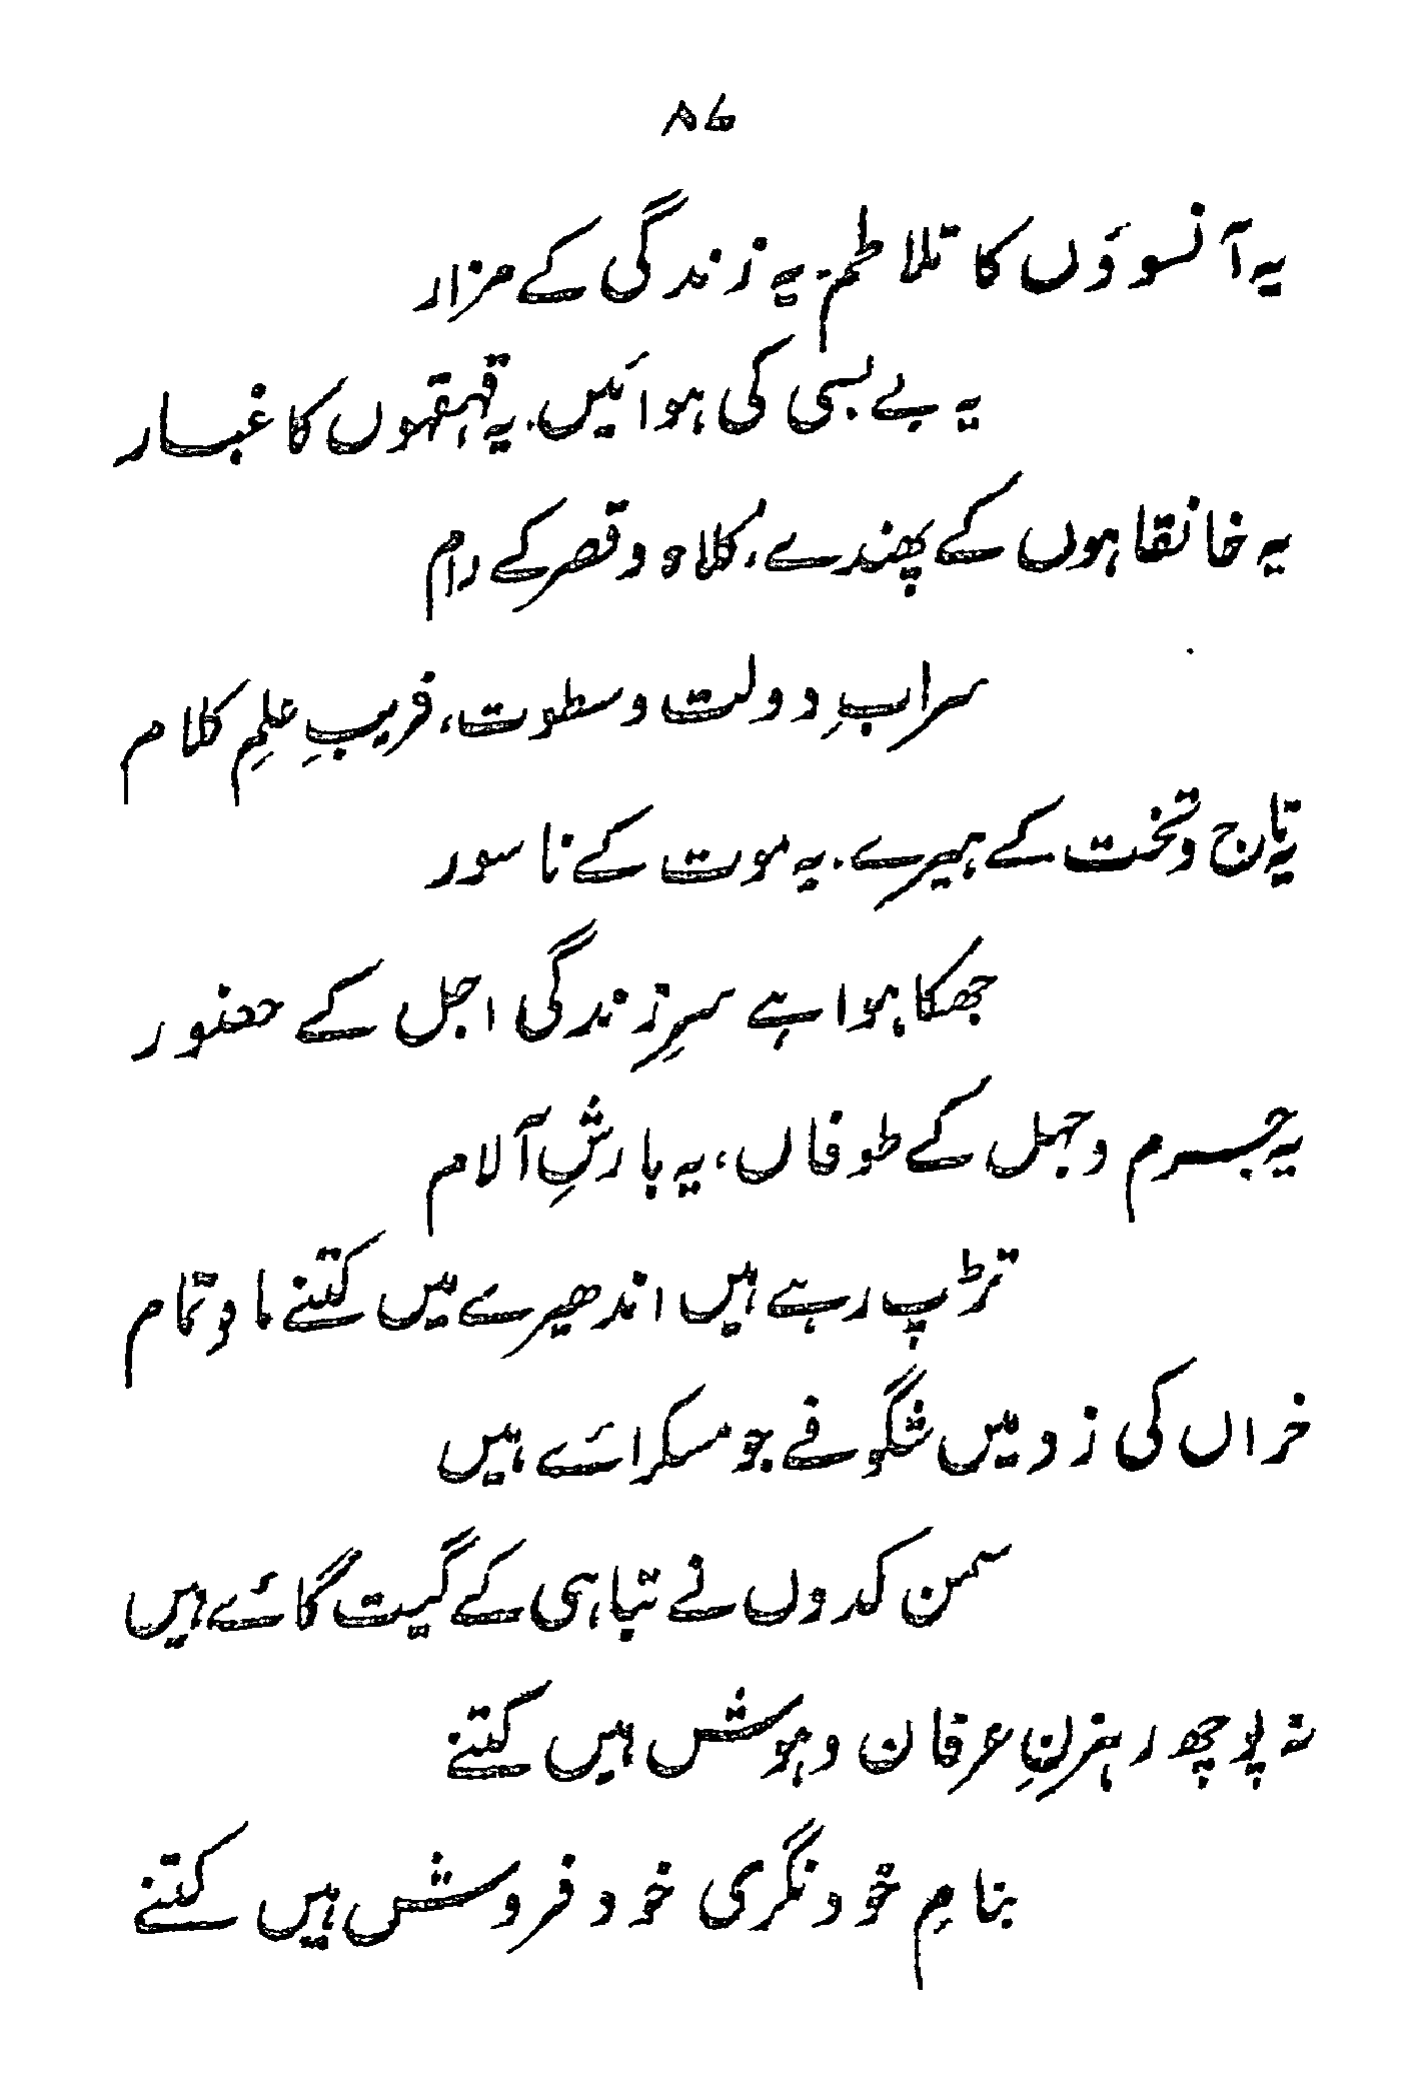 ۸۶
یہ آنسوؤں کا تلاطم۔ یہ زندگی کے مزار
یہ بے بسی کی ہوائیں۔ یہ قہقہوں کا غبار
یہ خانقاہوں کے پھندے، کلاہ و قصر کے دام
سرابِ دولت و سطوت، فریبِ علمِ کلام
یہ تاج و تخت کے ہیرے۔ یہ موت کے ناسور
جھکا ہوا ہے سرِ زندگی اجل کے حضور
یہ جرم و جہل کے طوفاں، یہ بارشِ آلام
تڑپ رہے ہیں اندھیرے میں کتنے ماہِ تمام
خزاں کی زد میں شگوفے جو مسکرائے ہیں
سمن کدوں نے تباہی کے گیت گائے ہیں
نہ پوچھ رہزنِ عرفان و ہوش ہیں کتنے
بنامِ خود نگری خود فروش ہیں کتنے